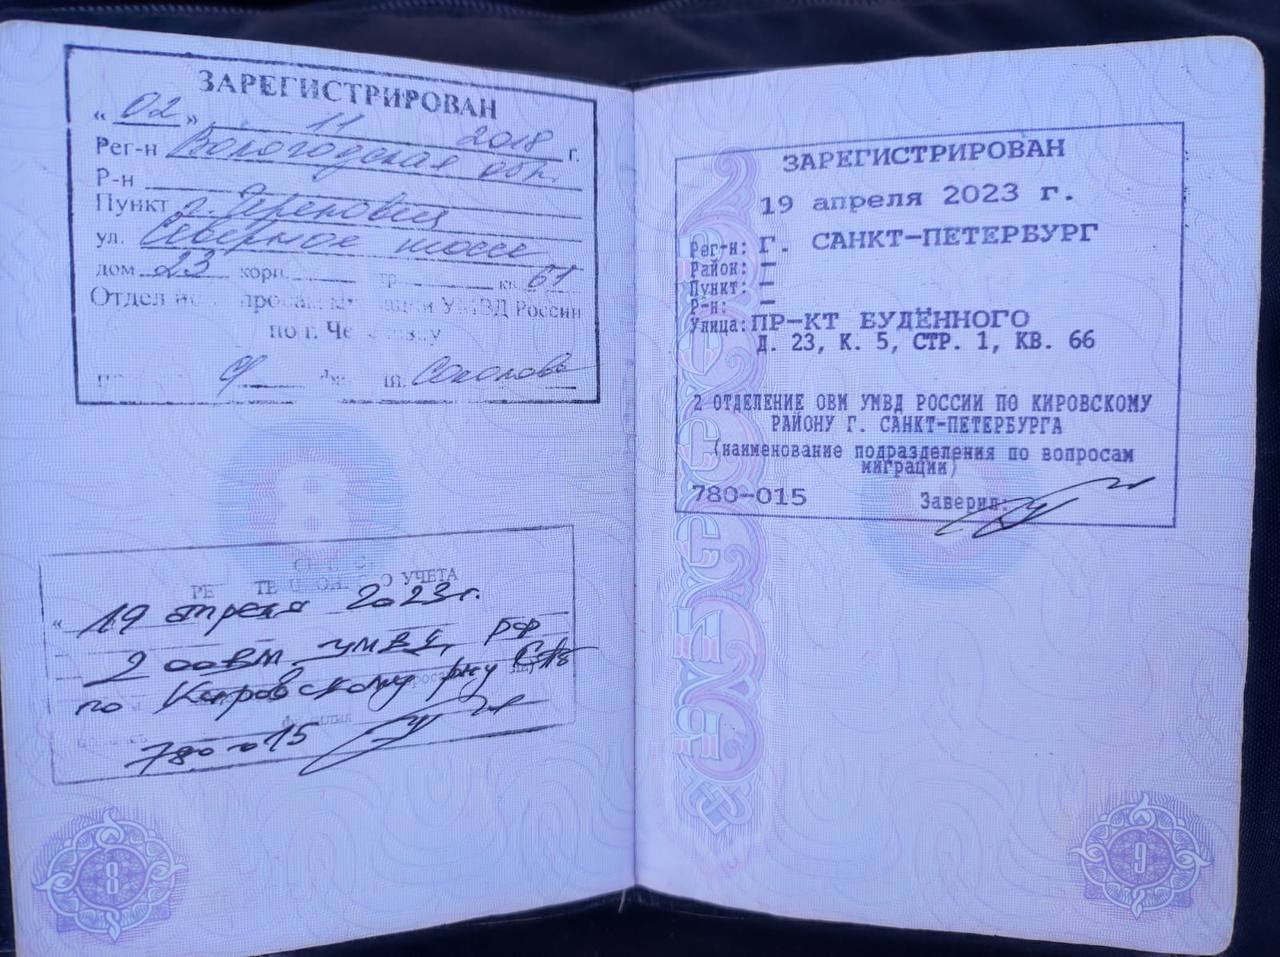 ЗАРЕГИСТРИРОВАН
« 02 » 11 2018 г.
Рег-н Вологодская обл.
Р-н
Пункт г. Череповец
ул. Северное шоссе
дом 23 корп. кв. 61
Отдел по вопросам миграции УМВД России
по г. Череповцу
Соколова
УЧЕТА
« 19 апреля 2023г.
2 оовм УМВД РФ
по Кировскому р-ну СПб
780-015
8
ЗАРЕГИСТРИРОВАН
19 апреля 2023 г.
Рег-н: Г. САНКТ-ПЕТЕРБУРГ
Район: —
Пункт: —
Р-н: —
Улица: ПР-КТ БУДЁННОГО
Д. 23, К. 5, СТР. 1, КВ. 66
2 ОТДЕЛЕНИЕ ОВМ УМВД РОССИИ ПО КИРОВСКОМУ
РАЙОНУ Г. САНКТ-ПЕТЕРБУРГА
(наименование подразделения по вопросам
миграции)
780-015 Заверил:
9